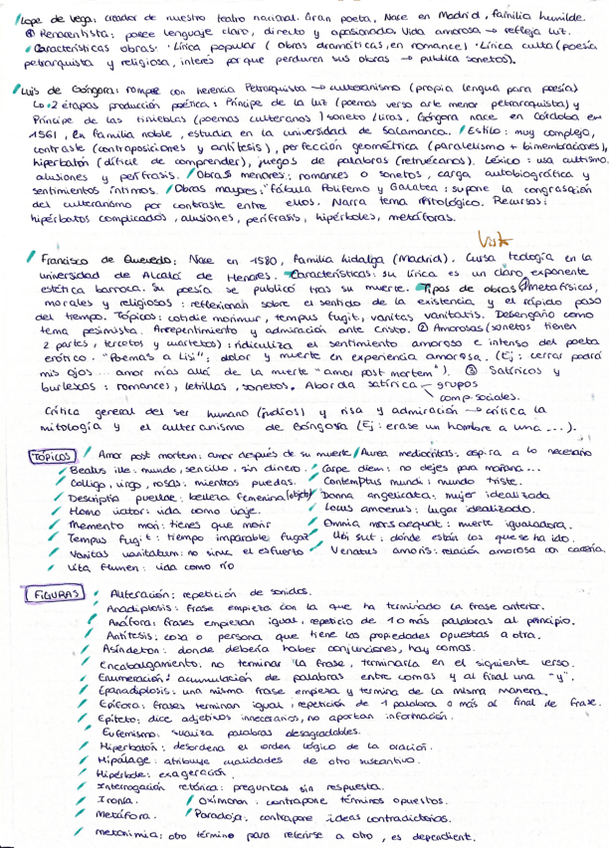 Lope de Vega: creador de nuestro teatro nacional. Gran poeta, Nace en Madrid, familia humilde.
Renacentista: posee lenguaje claro, directo y apasionado. Vida amorosa → refleja
Características obras: · Lírica popular (Obras dramáticas, en romance) · Lírica culta (poesía
petrarquista y religiosa, interés porque perduren sus obras → publica sonetos).
Luis de Góngora: rompe con herencia Petrarquista → culteranismo (propia lengua para poesía)
2 etapas producción poética: Príncipe de la luz (poemas verso arte menor petrarquista) y
Príncipe de las tinieblas (poemas culteranos) soneto / liras. Góngora nace en Córdoba en
1561, en familia noble, estudia en la universidad de Salamanca. Estilo: muy complejo,
contraste (contraposiciones y antítesis), perfección geométrica (paralelismo + bimembraciones),
hipérbaton (difícil de comprender), juegos de palabras (retruécanos). Léxico: usa cultismo,
alusiones y perífrasis. Obras menores: romances o sonetos, carga autobiográfica y
sentimientos íntimos. Obras mayores: "Fábula Polifemo y Galatea: supone la
del culteranismo por contraste entre ellos. Narra tema mitológico. Recursos:
hipérbatos complicados, alusiones, perífrasis, hipérboles, metáforas.
Francisco de Quevedo: Nace en 1580, familia hidalga (Madrid). Cursa teología en la
universidad de Alcalá de Henares. Características: su lírica es un claro exponente
estética barroca. Su poesía se publicó tras su muerte. Tipos de obras ① Metafísicas,
morales y religiosos: reflexionan sobre el sentido de la existencia y el rápido paso
del tiempo. Tópicos: cotidie morimur, tempus fugit, vanitas vanitatis. Desengaño como
tema pesimista. Arrepentimiento y admiración ante cristo. ② Amorosas (sonetos tienen
2 partes, tercetos y cuartetos): ridiculiza el sentimiento amoroso e intenso del poeta
erónico. "Poemas a Lisi": dolor y muerte en experiencia amorosa. (Ej: cerrar podrá
mis ojos... amor más allá de la muerte "amor post mortem"). ③ Satíricos y
burlescos: romances, letrillas, sonetos. Aborda satírica grupos
comp. sociales.
Crítica general del ser humano (indios) y risa y admiración → critica la
mitología y el culteranismo de Góngora (Ej: erase un hombre a una ...).
TÓPICOS Amor post mortem: amor después de su muerte Aurea mediocritas: aspira a lo necesario
Beatus ille: mundo, sencillo, sin dinero. Carpe diem: no dejes para mañana...
Colligo, virgo, rosas: mientras puedas. Contemptus mundi: mundo triste.
Descriptio puellae: belleza femenina (objeto) Donna angelicata: mujer idealizada
Homo viator: vida como viaje. Locus amoenus: lugar idealizado.
Memento mori: tienes que morir Omnia mors aequat: muerte igualadora.
Tempus fugit: tiempo imparable fugaz Ubi sut: dónde están los que se ha ido.
Vanitas vanitatum: no sirve el esfuerzo Venatus amoris: relación amorosa con cacería.
Vita flumen: vida como río
FIGURAS Aliteración: repetición de sonidos.
Anadiplosis: frase empieza con la que ha terminado la frase anterior.
Anáfora: frases empiezan igual, repetición de 1 o más palabras al principio.
Antítesis: cosa o persona que tiene las propiedades opuestas a otra.
Asíndeton: donde debería haber conjunciones, hay comas.
Encabalgamiento: no terminar la frase, terminarla en el siguiente verso.
Enumeración: acumulación de palabras entre comas y al final una "y".
Epanadiplosis: una misma frase empieza y termina de la misma manera.
Epífora: frases terminan igual, repetición de 1 palabra o más al final de frase.
Epíteto: dice adjetivos innecesarios, no aportan información.
Eufemismo: suaviza palabras desagradables.
Hipérbaton: desordena el orden lógico de la oración.
Hipálage: atribuye cualidades de otro sustantivo.
Hipérbole: exageración.
Interrogación retórica: preguntas sin respuesta.
Ironía. Oxímoron: contrapone términos opuestos.
Metáfora. Paradoja: contrapone ideas contradictorias.
metonimia: otro término para referirse a otro, es dependient.